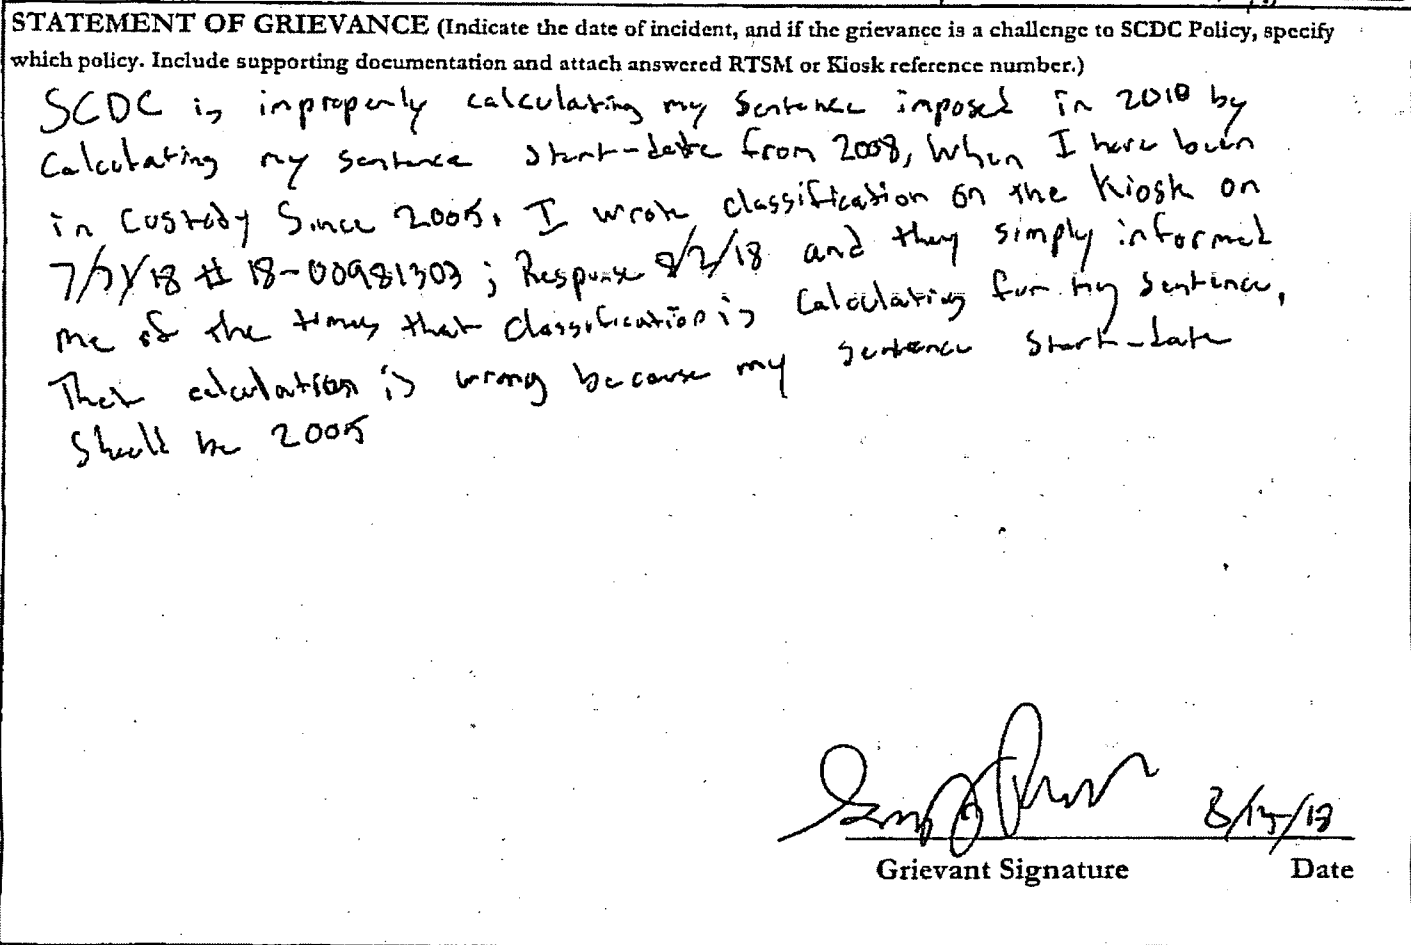 STATEMENT OF GRIEVANCE (Indicate the date of incident, and if the grievance is a challenge to SCDC Policy, specify
which policy. Include supporting documentation and attach answered RTSM or Kiosk reference number.)
SCDC is improperly calculating my sentence imposed in 2010 by
Calculating my sentence start-date from 2008, when I have been
in custody since 2005. I wrote classification on the Kiosk on
# 18-00981303 ; Response 8/2/18 and they simply informed
me of the times that classification is calculating for my sentence,
That calculation is wrong because my sentence start-date
should be 2005
Grievant Signature Date